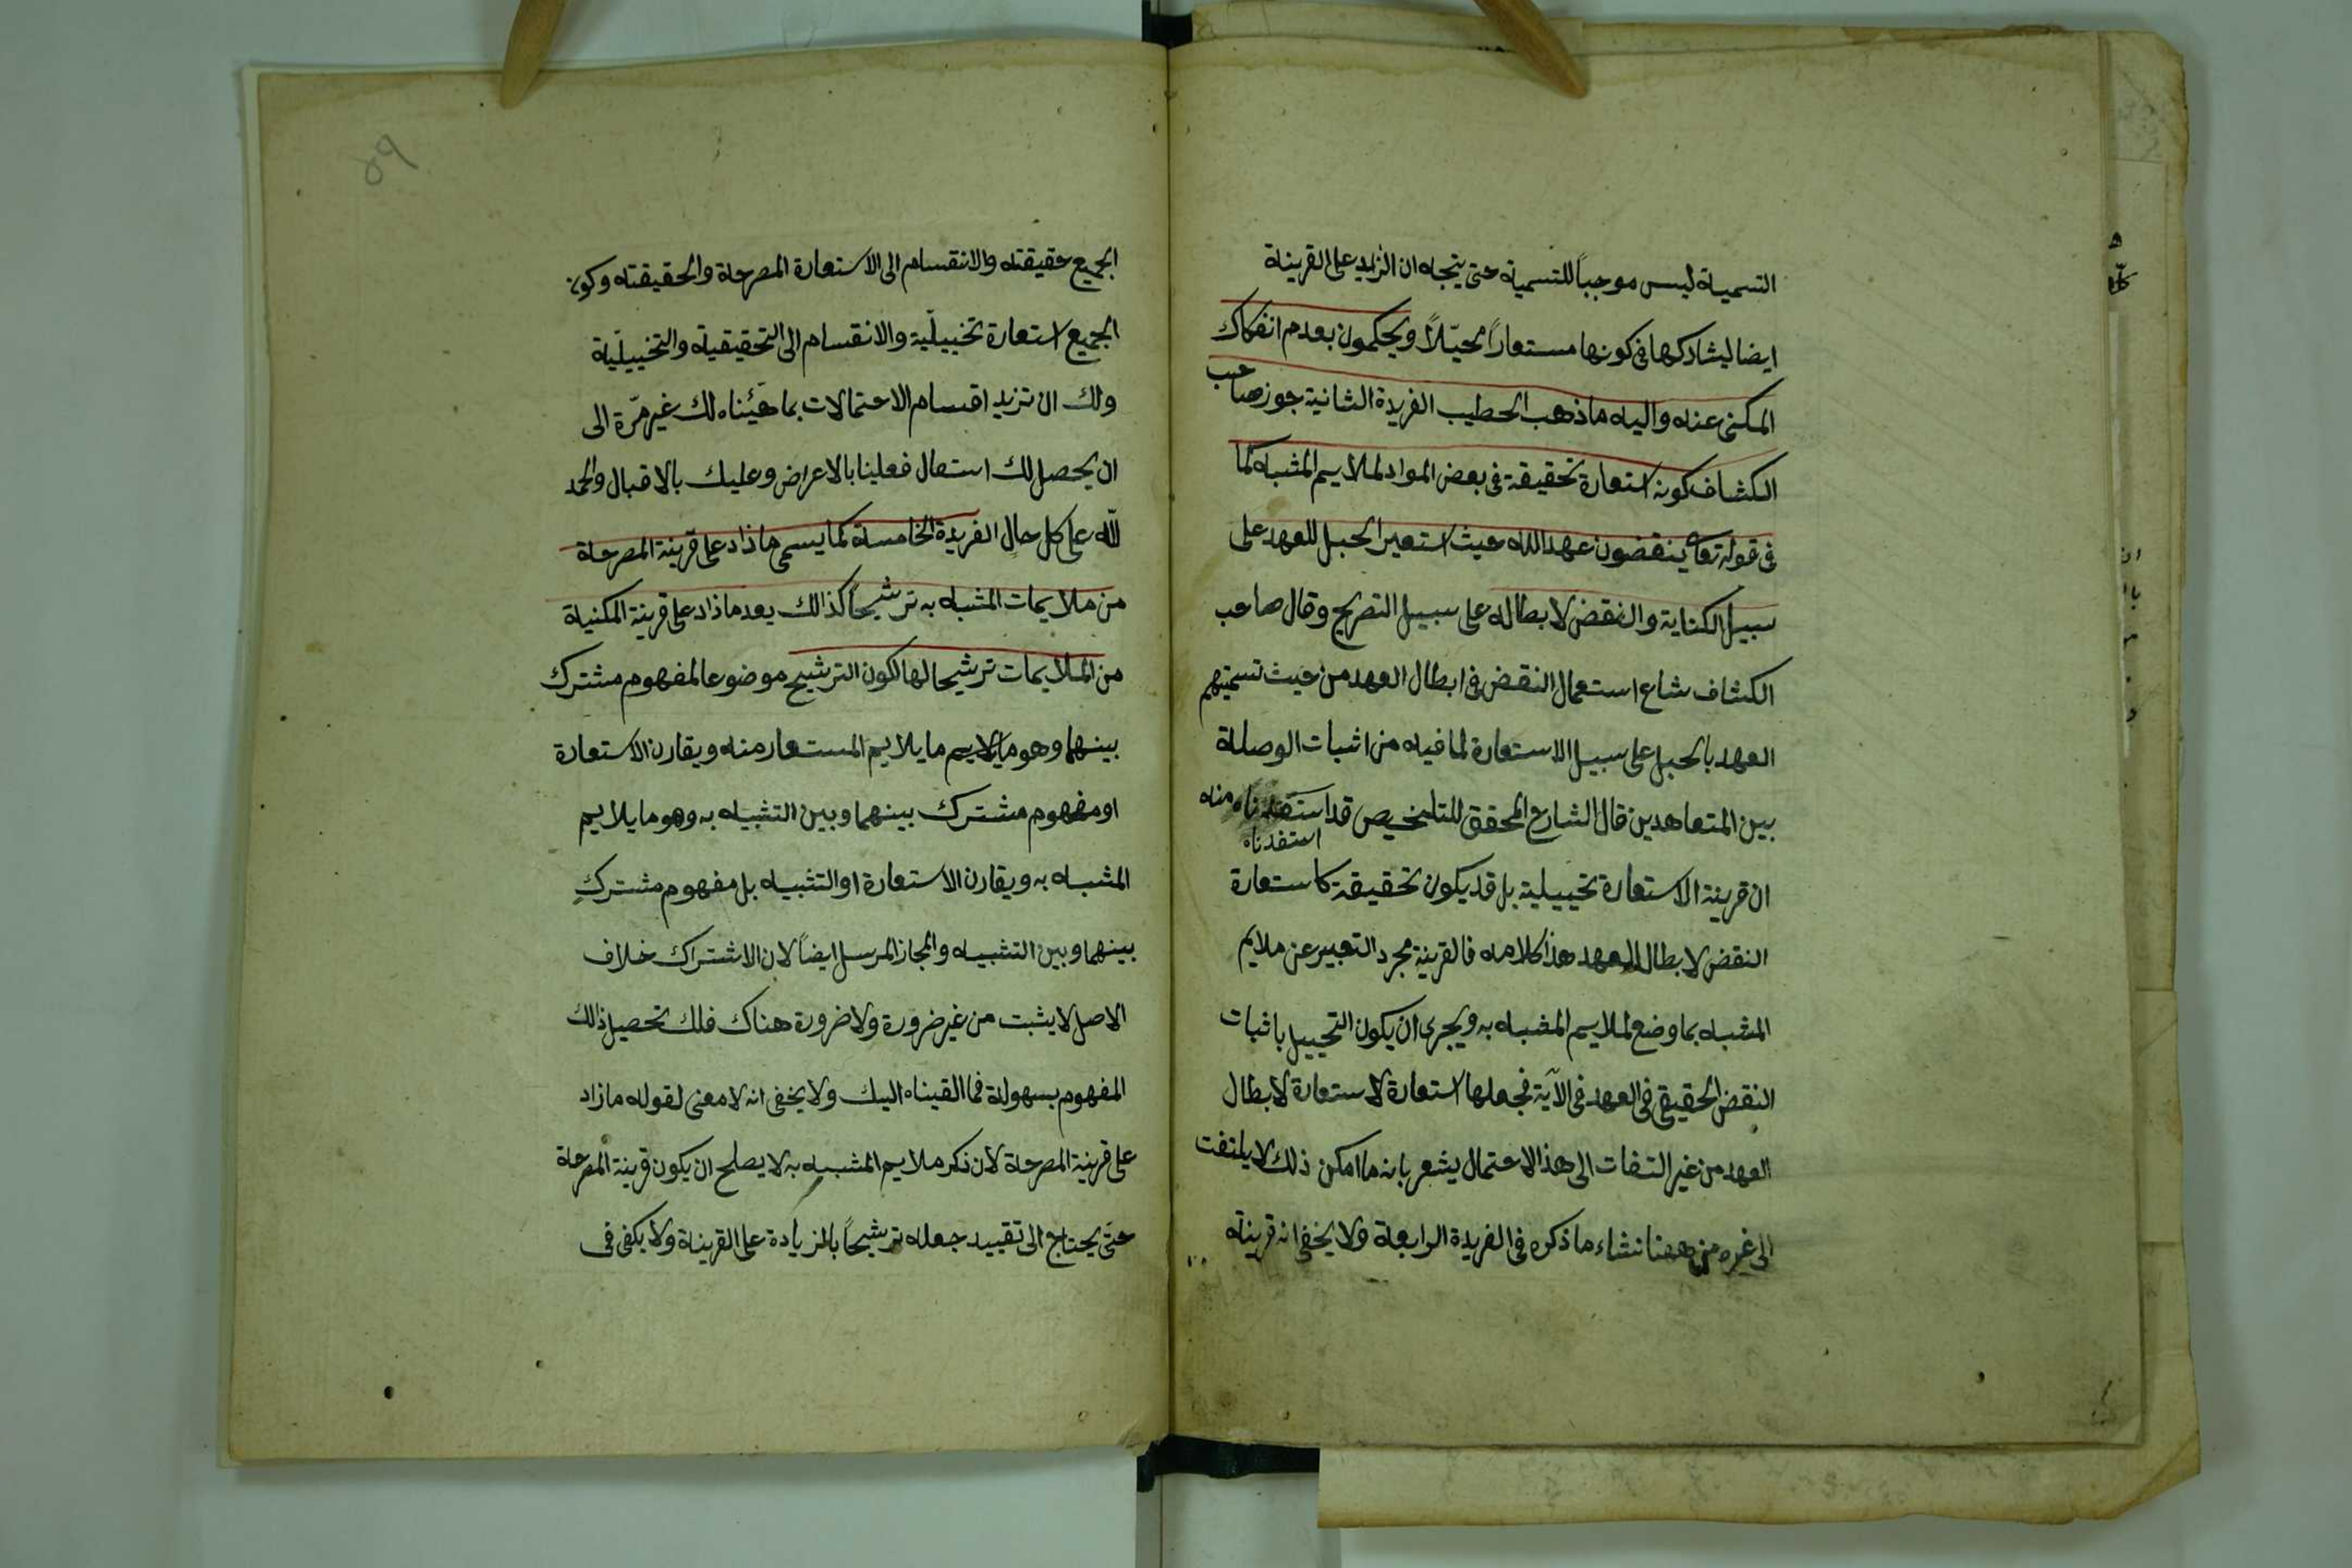 التسمية ليس موجباً للتسمية حتى يتجه ان الزايد على القرينة
ايضا ليشاركها في كونها مستعاراً مخيّلاً ويحكمون بعدم انفكاك
المكنى عنه واليه ما ذهب الخطيب الفريدة الثانية جوز صاحب
الكشاف كونه استعارة تحقيقة في بعض المواد لملايم المشبه كما
في قوله تعالى ينقضون عهد الله حيث استعير الحبل للعهد على
سبيل الكناية والنقض لابطاله على سبيل التصريح وقال صاحب
الكشاف شاع استعمال النقض في ابطال العهد من حيث تسميتهم
العهد بالحبل على سبيل الاستعارة لما فيه من اثبات الوصلة
بين المتعاهدين قال الشارح المحقق للتلخيص قد استفدناه منه
استفدناه
ان قرينة الاستعارة تخييلية بل قد يكون تحقيقة كاستعارة
النقض لابطال العهد هذا كلامه فالقرينة مجرد التعبير عن ملايم
المشبه بما وضع لملايم المشبه به ويجرى ان يكون التخييل باثبات
النقض الحقيقي في العهد في الآية فجعلها استعارة لاستعارة لابطال
العهد من غير التفات الى هذا الاحتمال يشعر بانه ما امكن ذلك لا يلتفت
الى غيره من ههنا نشاء ما ذكره في الفريدة الرابعة ولا يخفى انه قرينة
٥٩
الجميع حقيقته والانقسام الى الاستعارة المصرحة والحقيقته وكون
الجميع استعارة تخييلّية والانقسام الى التحقيقية والتخييليّة
ولك ان تزيد اقسام الاحتمالات بما هيّئناه لك غير مرّة الى
ان يحصل لك استعمال فعلينا بالاعراض وعليك بالاقبال والحمد
لله على كل حال الفريدة الخامسة كما يسمى ما زاد على قرينة المصرحة
من ملايمات المشبه به ترشيحاً كذالك يعد ما زاد على قرينة المكنية
من الملايمات ترشيحا لها لكون الترشيح موضوعا لمفهوم مشترك
بينهما وهو ما يلايم ما يلايم المستعار منه ويقارن الاستعارة
او مفهوم مشترك بينهما وبين التشبيه به وهو ما يلايم
المشبه به ويقارن الاستعارة او التشبيه بل مفهوم مشترك
بينهما وبين التشبيه والمجاز المرسل ايضاً لان الاشتراك خلاف
الاصل لا يثبت من غير ضرورة ولا ضرورة هناك فلك تحصيل ذالك
المفهوم بسهولة فما القيناه اليك ولا يخفى انه لا معنى لقوله ما زاد
على قرينة المصرحة لان ذكر ملايم المشبه به لا يصلح ان يكون قرينة المصرحة
حتى يحتاج الى تقييد جعله ترشيحاً بالزيادة على القرينة ولا يكفى في